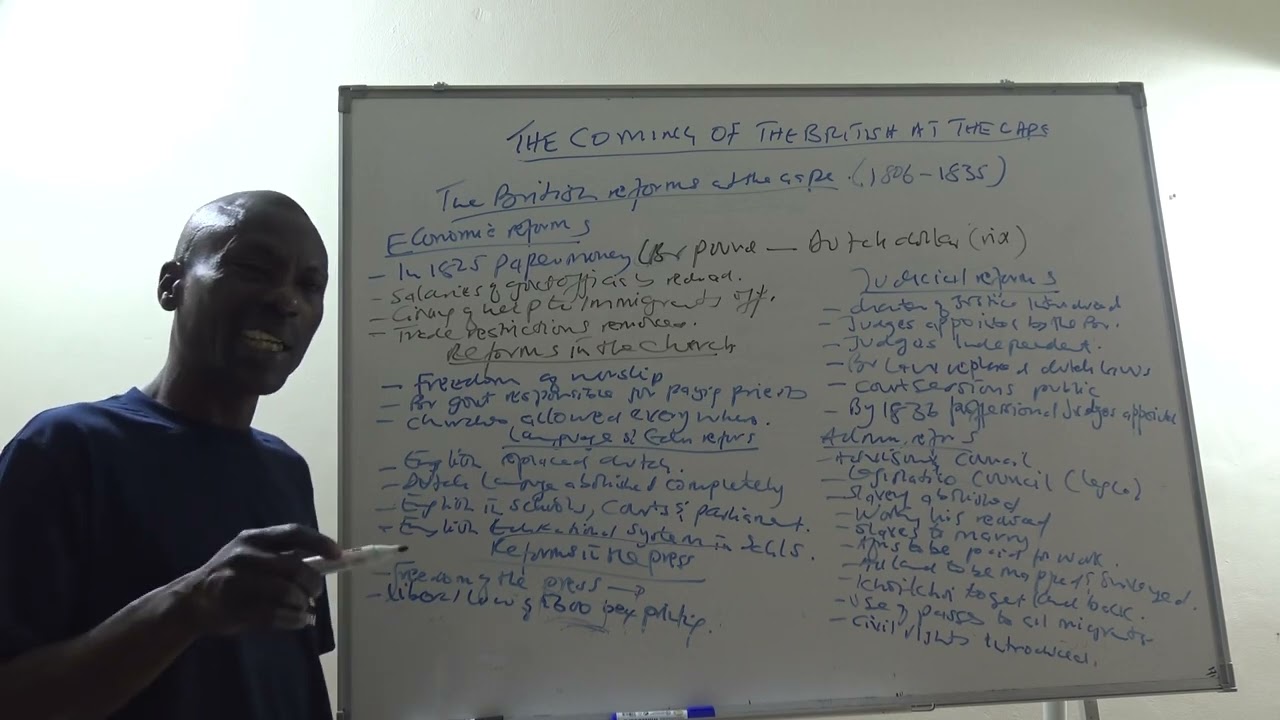 THE COMING OF THE BRITISH AT THE CAPE
The British reforms at the cape (1806-1835)
Economic reforms
- In 1825 Paper money (Br pound — Dutch dollar (rix)
- Salaries of govt officials reduced.
- Giving of help to immigrants off.
- Trade restrictions removed.
Reforms in the church
- Freedom of worship
- Br govt responsible for paying priests
- churches allowed everywhere.
Language & Educ reforms
- English replaced dutch.
- Dutch language abolished completely
- English in schools, courts & parliament.
- English Educational system in
Reforms in the press
- Freedom of the press →
- law of 1800 printing.
Judicial reforms
- charter of Justice introduced
- Judges appointed by the Gov.
- Judges Independent.
- Br Laws replaced dutch laws
- court sessions public
- By professional Judges appointed
Admin. reforms
- Advisory council
- Legislative council (legco)
- Slavery abolished
- Working hrs reduced
- Slaves to marry
- to be paid for work.
- All land to be mapped & surveyed.
- Khoikhoi to get land back.
- use of passes to all migrants
- civil rights introduced.